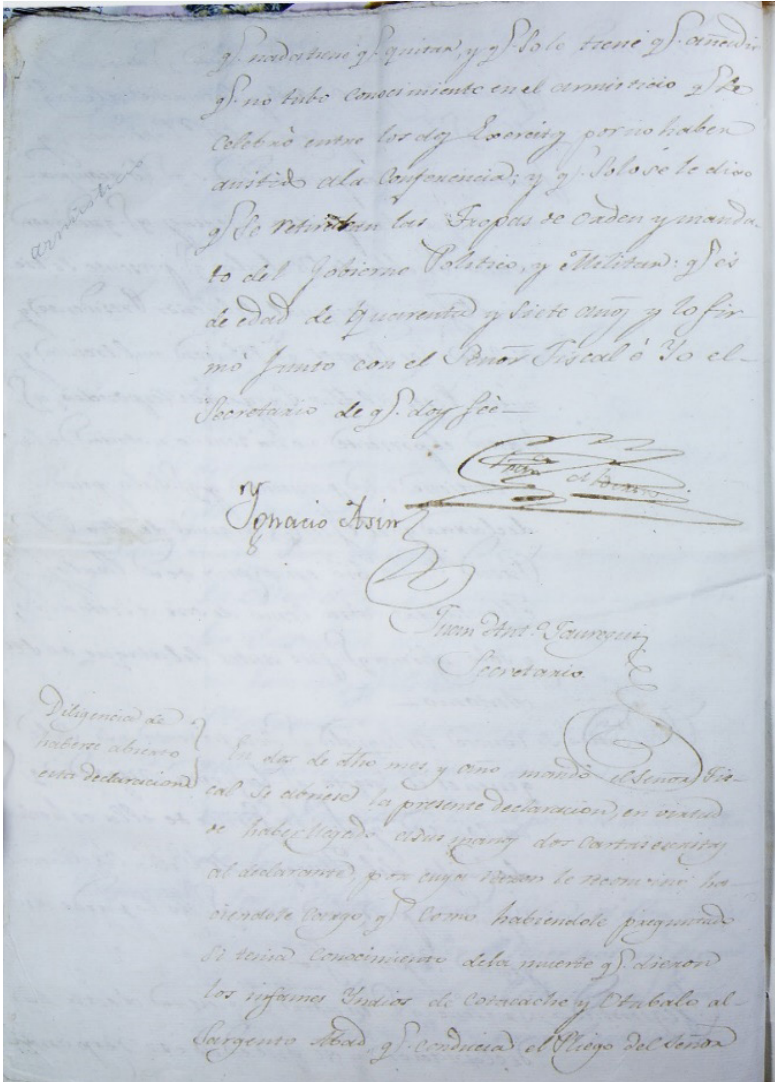 qᵉ. nada tiene qᵉ. quitar, y qᵉ. solo tiene qᵉ. añedir
qᵉ. no tubo conocimiento en el armisticio qᵉ. se
celebró entre los dos Exercitos por no haber
asistido à la Conferencia; y qᵉ. solo se le dixo
qᵉ. se retiraban las Tropas de orden y manda-
to del Gobierno Politico, y Militar: qᵉ. es
de edad de quarenta y siete años y lo fir-
mó junto con el Señor Fiscal è Yo el
Secretario de qᵉ. doy feè—
armisticio
Ygnacio Asin
Juan Antº. Jauregui
Secretario
Diligencia de
haberse abierto
esta declaracion
En dos de dho mes, y año mandó el Señor Fis-
cal se abriese la presente declaracion, en virtud
de haber llegado a sus manos dos cartas escritas
al declarante, por cuya razon le reconvine ha-
ciendole cargo, qᵉ. como habiendole preguntado
si tenia conocimiento dela muerte qᵉ. dieron
los infames Yndios de Cotacache y Otabalo al
Sargento Abad, qᵉ. conducia el Pliego del Señor